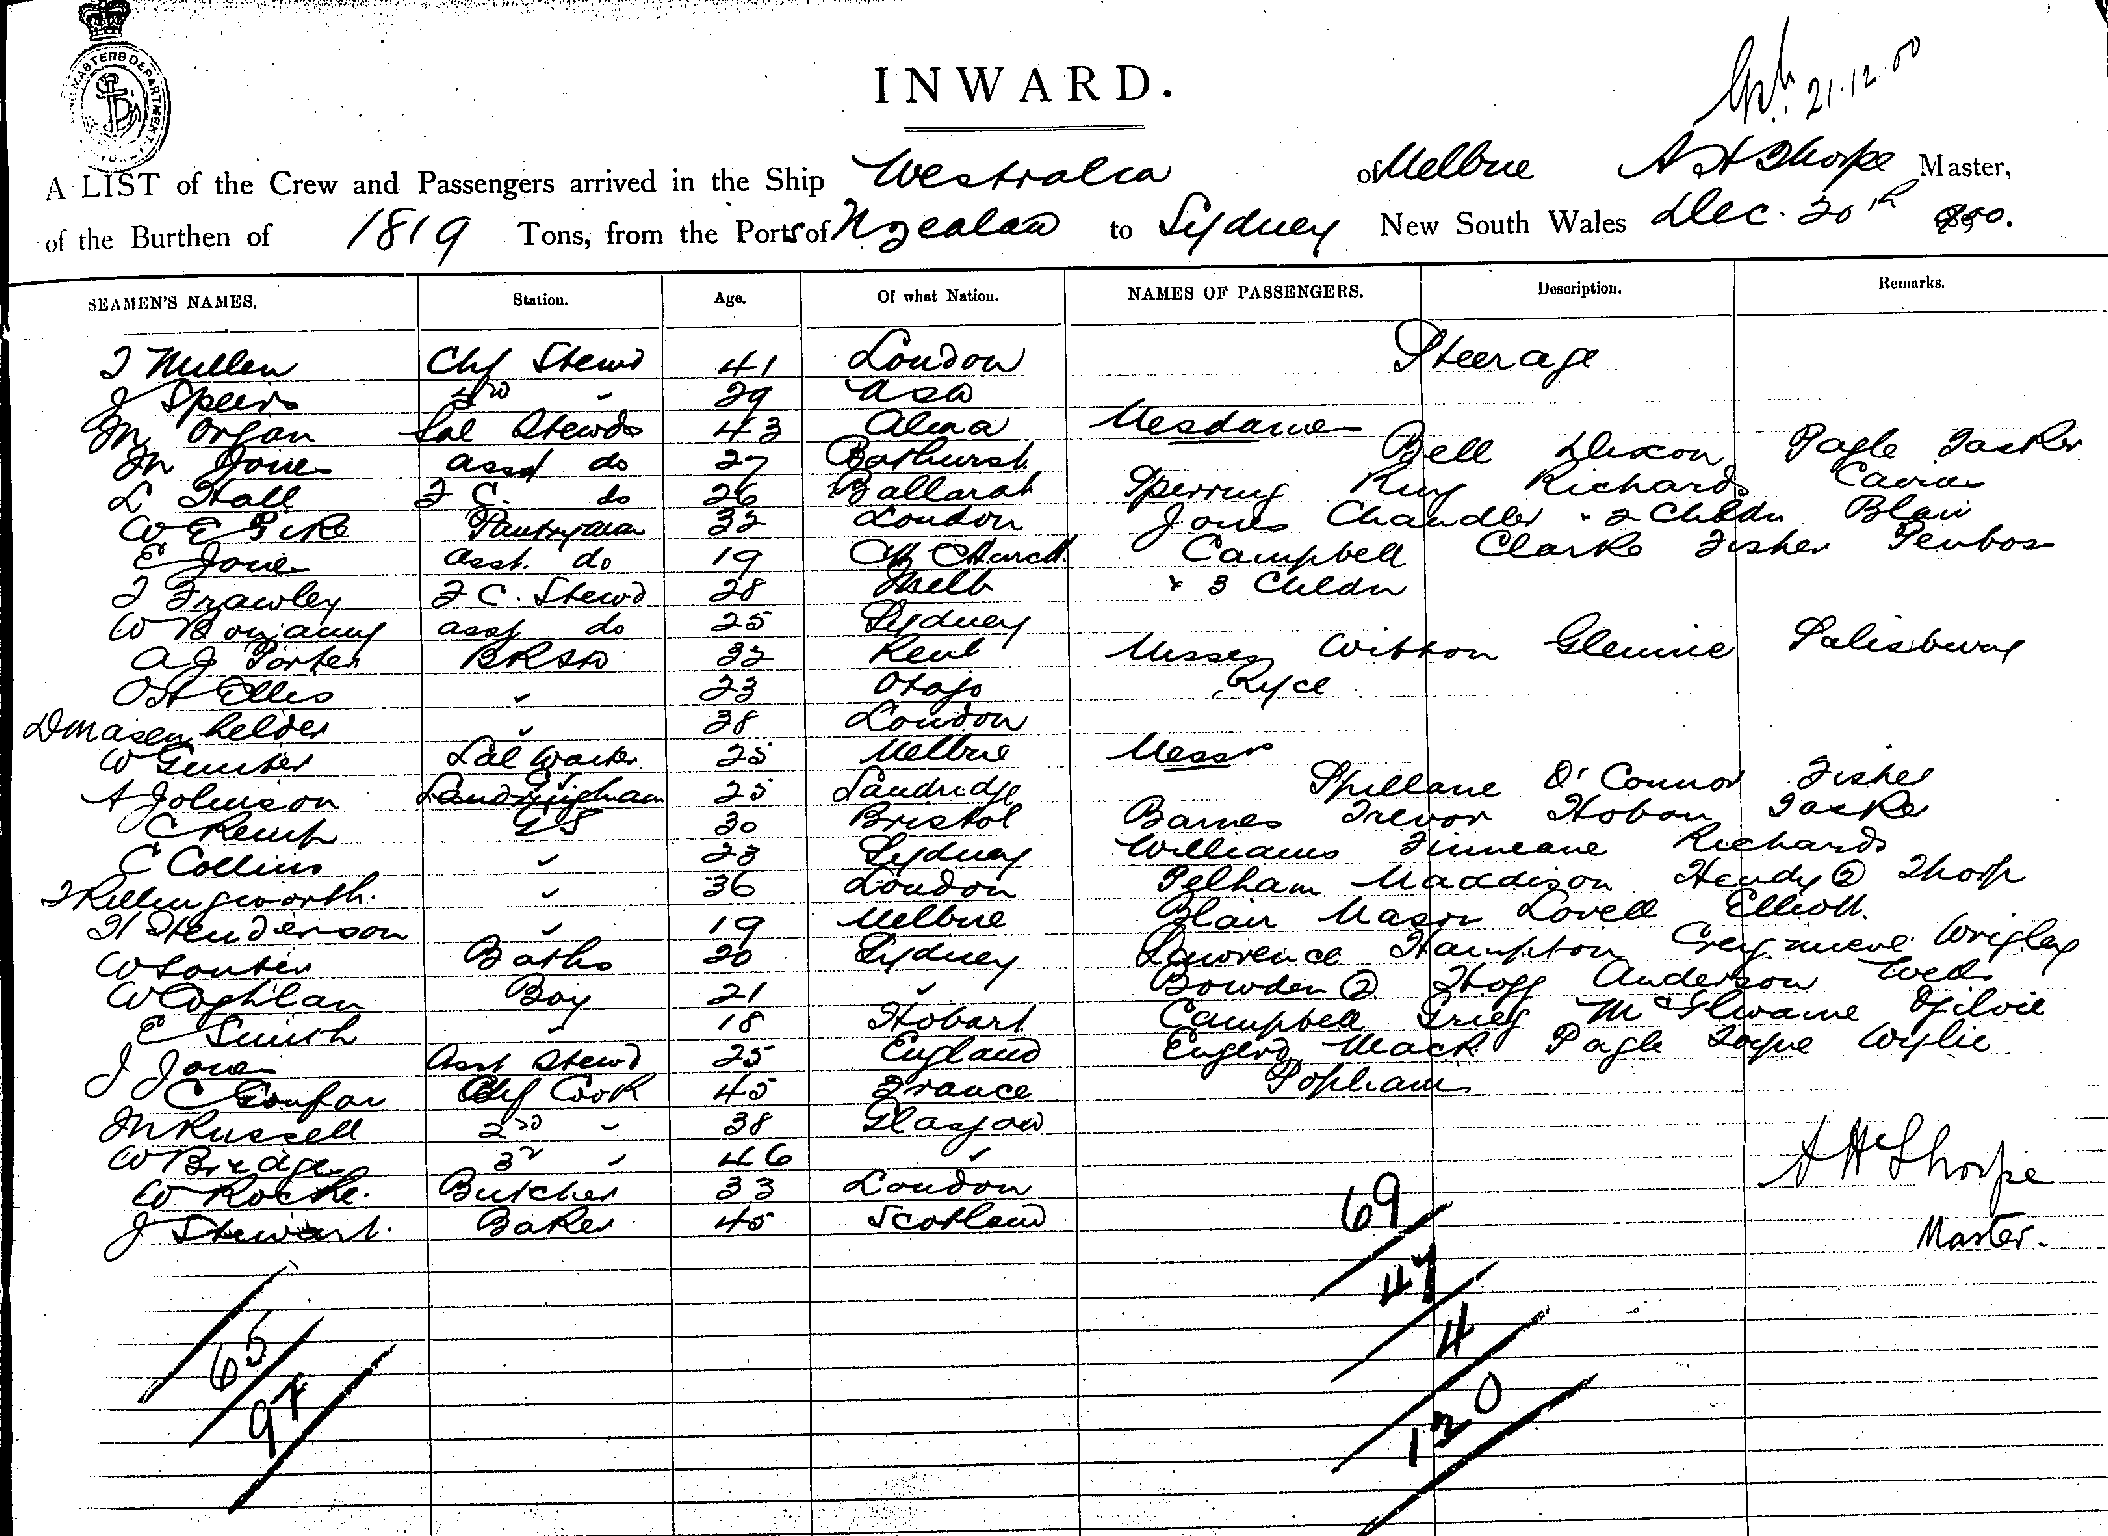 INWARD.
21.12.00
A LIST of the Crew and Passengers arrived in the Ship Westralia of Melbne A H Thorpe Master,
of the Burthen of 1819 Tons, from the Ports of N Zealand to Sydney New South Wales Dec. 20th 1900.
SEAMEN'S NAMES. Station. Age. Of what Nation. NAMES OF PASSENGERS. Description. Remarks.
T Mullen Chf Stewd 41 London Steerage
J Speirs 29
M Organ Sal Stewds 43 Alma Mesdames
M Jones asst do 27 Bathurst Bell Dixon Pagle Tasker
L Hall F C. do 26 Ballarat Sperring King Richards
W E Pike Pantryman 32 London Jones Chandler & 2 Childn Blair
E Jones asst. do 19 Ch Church Campbell Clarke Fisher
T Frawley F C. Stewd 28 Melb & 3 Childn
W asst do 25 Sydney
A J Porter BRStd 32 Kent Misses Witton Glennie Salisbury
O H Ellis " 23 Otago Ryce
D Masenhelder " 38 London
W Gunter 25 Melbne Messrs
A Johnson 25 Sandridge Spillane O'Connor Fisher
C Kemp G S 30 Bristol Barnes Trevor Hoban Tasker
C Collins " 23 Sydney Williams Finneane Richards
T Killingworth. " 36 London Pelham Maddison Hendy (2) Thorp
H Henderson " 19 Melbne Blair Mason Lovell Elliott.
W Souter Baths 20 Sydney Lawrence Hampton Wrigley
W Coghlan Boy 21 " Bowden (2) Hogg Anderson Wells
E Smith " 18 Hobart Campbell Greig McIlwaine Ogilvie
J Jones Asst Stewd 25 England Mack Pagle Wylie
C Chf Cook 45 France Popham
M Russell 2nd " 38 Glasgow
W Bridge 3rd " 46 "
W Rocke. Butcher 33 London A H Thorpe
J Stewart. Baker 45 Scotland Master.
69
47
4
120
65
97